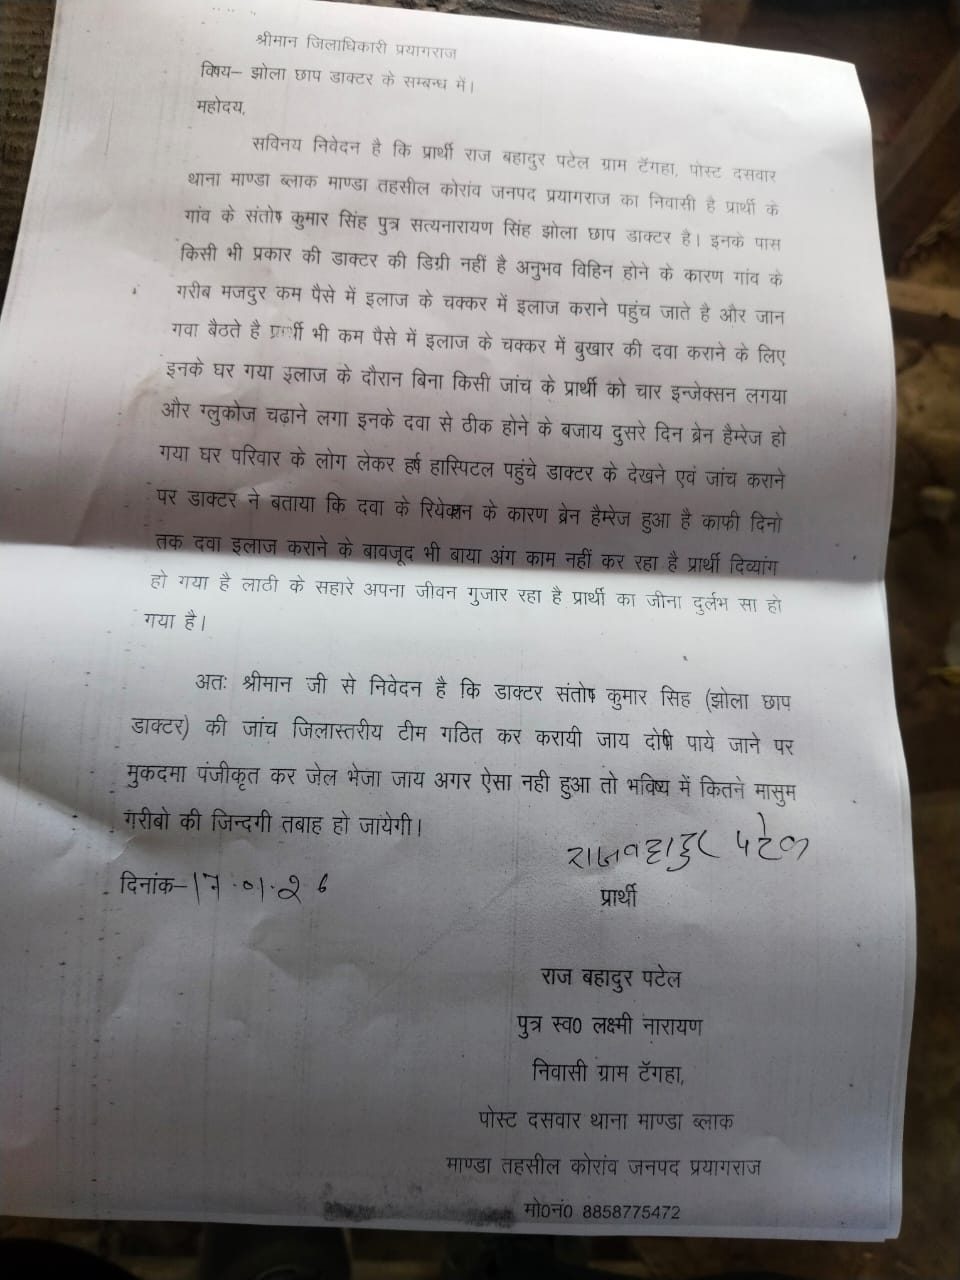 श्रीमान जिलाधिकारी प्रयागराज
विषय– झोला छाप डाक्टर के सम्बन्ध में।
महोदय,
सविनय निवेदन है कि प्रार्थी राज बहादुर पटेल ग्राम टॅगहा, पोस्ट दसवार
थाना माण्डा ब्लाक माण्डा तहसील कोरांव जनपद प्रयागराज का निवासी है प्रार्थी के
गांव के संतोष कुमार सिंह पुत्र सत्यनारायण सिंह झोला छाप डाक्टर है। इनके पास
किसी भी प्रकार की डाक्टर की डिग्री नहीं है अनुभव विहिन होने के कारण गांव के
गरीब मजदुर कम पैसे में इलाज के चक्कर में इलाज कराने पहुंच जाते है और जान
गवा बैठते है प्रार्थी भी कम पैसे में इलाज के चक्कर में बुखार की दवा कराने के लिए
इनके घर गया इलाज के दौरान बिना किसी जांच के प्रार्थी को चार इन्जेक्सन लगया
और ग्लुकोज चढ़ाने लगा इनके दवा से ठीक होने के बजाय दुसरे दिन ब्रेन हैम्रेज हो
गया घर परिवार के लोग लेकर हर्ष हास्पिटल पहुंचे डाक्टर के देखने एवं जांच कराने
पर डाक्टर ने बताया कि दवा के रियेक्शन के कारण ब्रेन हैम्रेज हुआ है काफी दिनो
तक दवा इलाज कराने के बावजूद भी बाया अंग काम नहीं कर रहा है प्रार्थी दिव्यांग
हो गया है लाठी के सहारे अपना जीवन गुजार रहा है प्रार्थी का जीना दुर्लभ सा हो
गया है।
अतः श्रीमान जी से निवेदन है कि डाक्टर संतोष कुमार सिह (झोला छाप
डाक्टर) की जांच जिलास्तरीय टीम गठित कर करायी जाय दोषी पाये जाने पर
मुकदमा पंजीकृत कर जेल भेजा जाय अगर ऐसा नही हुआ तो भविष्य में कितने मासुम
गरीबो की जिन्दगी तबाह हो जांयेगी।
राजबहादुर पटेल
दिनांक–17.01.26
प्रार्थी
राज बहादुर पटेल
पुत्र स्व0 लक्ष्मी नारायण
निवासी ग्राम टॅगहा,
पोस्ट दसवार थाना माण्डा ब्लाक
माण्डा तहसील कोरांव जनपद प्रयागराज
मो0नं0 8858775472